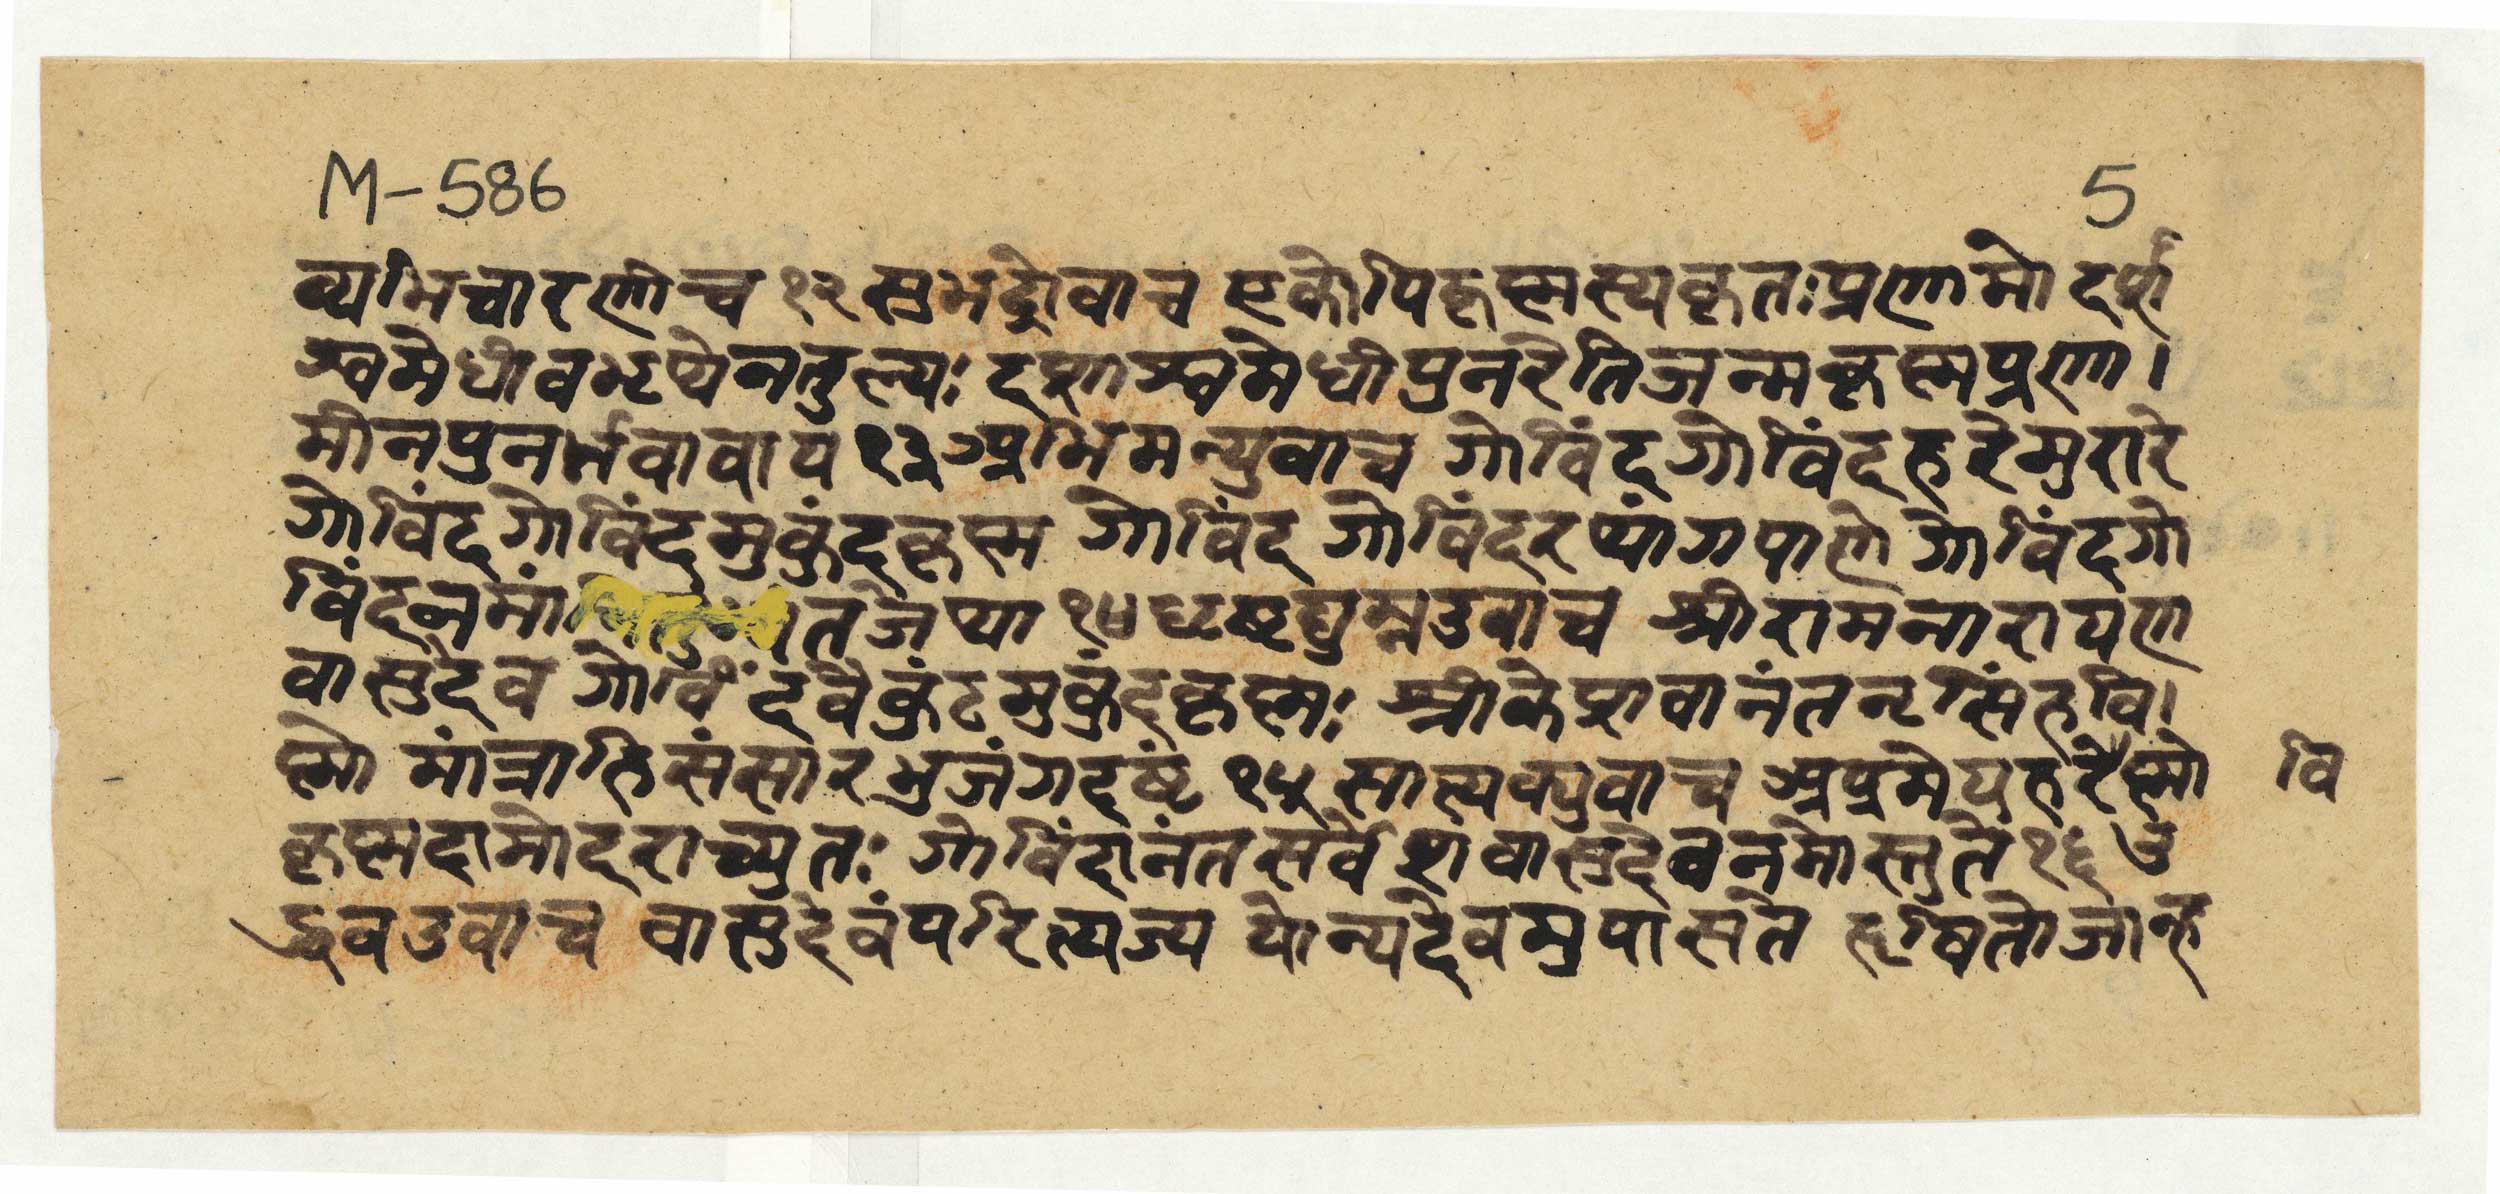 M-586 5
व्यभिचारणीच १२ सुभद्रोवाच एकोपिकृष्मस्यकृतःप्रणामो दर्शा
श्वमेधीवभृथेनतुल्यः दशाश्वमेधीपुनरेतिजन्मकृष्मप्रणा।
मीनपुनर्भवावाय १३ अभिमन्युवाच गोविंदगोविंदहरेमुरारे
गोविंदगोविंदमुकुंदकृष्म गोविंद गोविंदरथांगपाणे गोविंदगो
विंदनमा तजेया १४ धृष्टद्युम्नउवाच श्रीरामनारायण
वासुदेव गोविंदवैकुंठमुकुंदकृष्मः श्रीकेशवानंतनृसिंहवि।
ष्मो मांत्राहिसंसारभुजंगदृष्टं १५ सात्यक्युवाच अप्रमेयहरेष्मो वि
कृष्मदामोदराच्युतः गोविंदानंतसर्वेशवासुदेवनमोस्तुते १६ उ
द्धवउवाच वासुदेवंपरित्यज्य योन्यदेवमुपासते तृषितोजान्ह